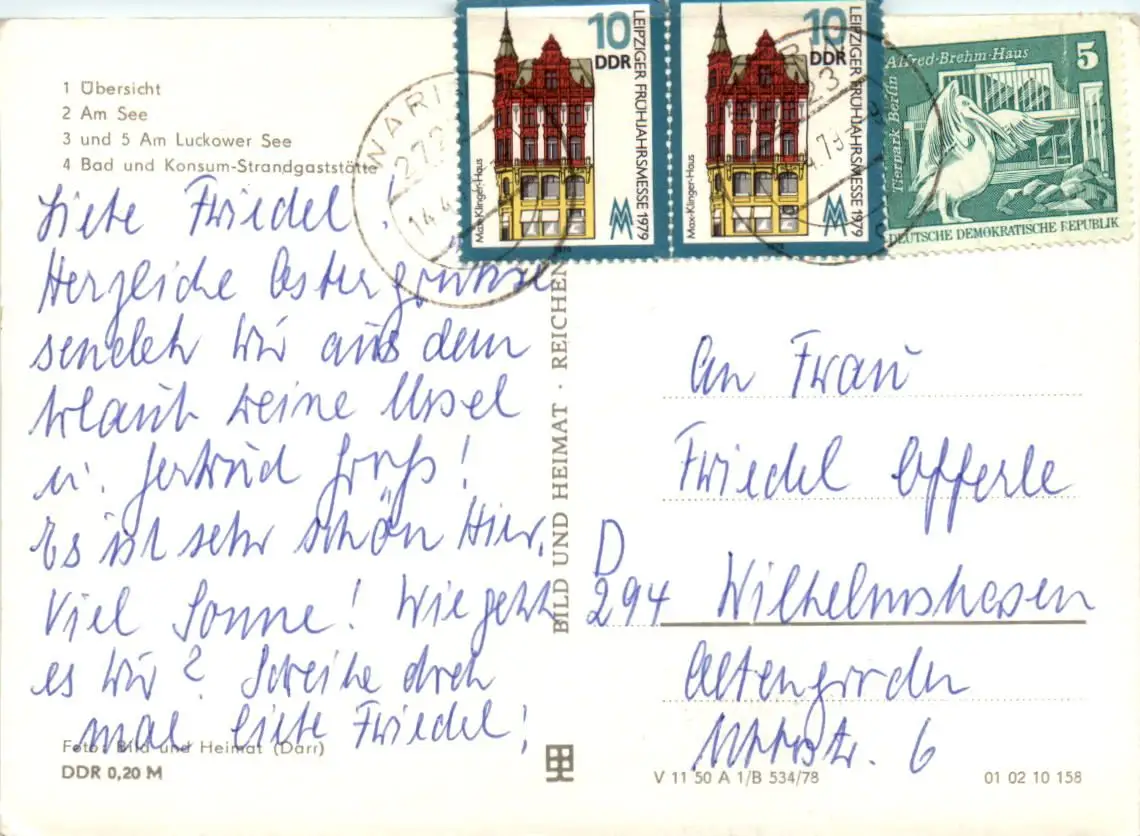 1 Übersicht
2 Am See
3 und 5 Am Luckower See
4 Bad und Konsum-Strandgaststätte
Liebe Friedel!
Herzliche Ostergrüße
sendet Wir aus dem
Urlaub Deine Ursel
u. Gertrud Groß!
Es ist sehr schön Hier.
Viel Sonne! Wie geht
es Dir? Schreibe doch
mal liebe Friedel!
Foto: Bild und Heimat (Darr)
DDR 0,20 M
BILD UND HEIMAT · REICHEN
10
DDR
LEIPZIGER FRÜHJAHRSMESSE 1979
Max-Klinger-Haus
10
DDR
LEIPZIGER FRÜHJAHRSMESSE 1979
Max-Klinger-Haus
Alfred-Brehm-Haus
5
Tierpark Berlin
DEUTSCHE DEMOKRATISCHE REPUBLIK
An Frau
Friedel Efferle
D
294 Wilhelmshafen
Altengroden
6
V 11 50 A 1/B 534/78
01 02 10 158